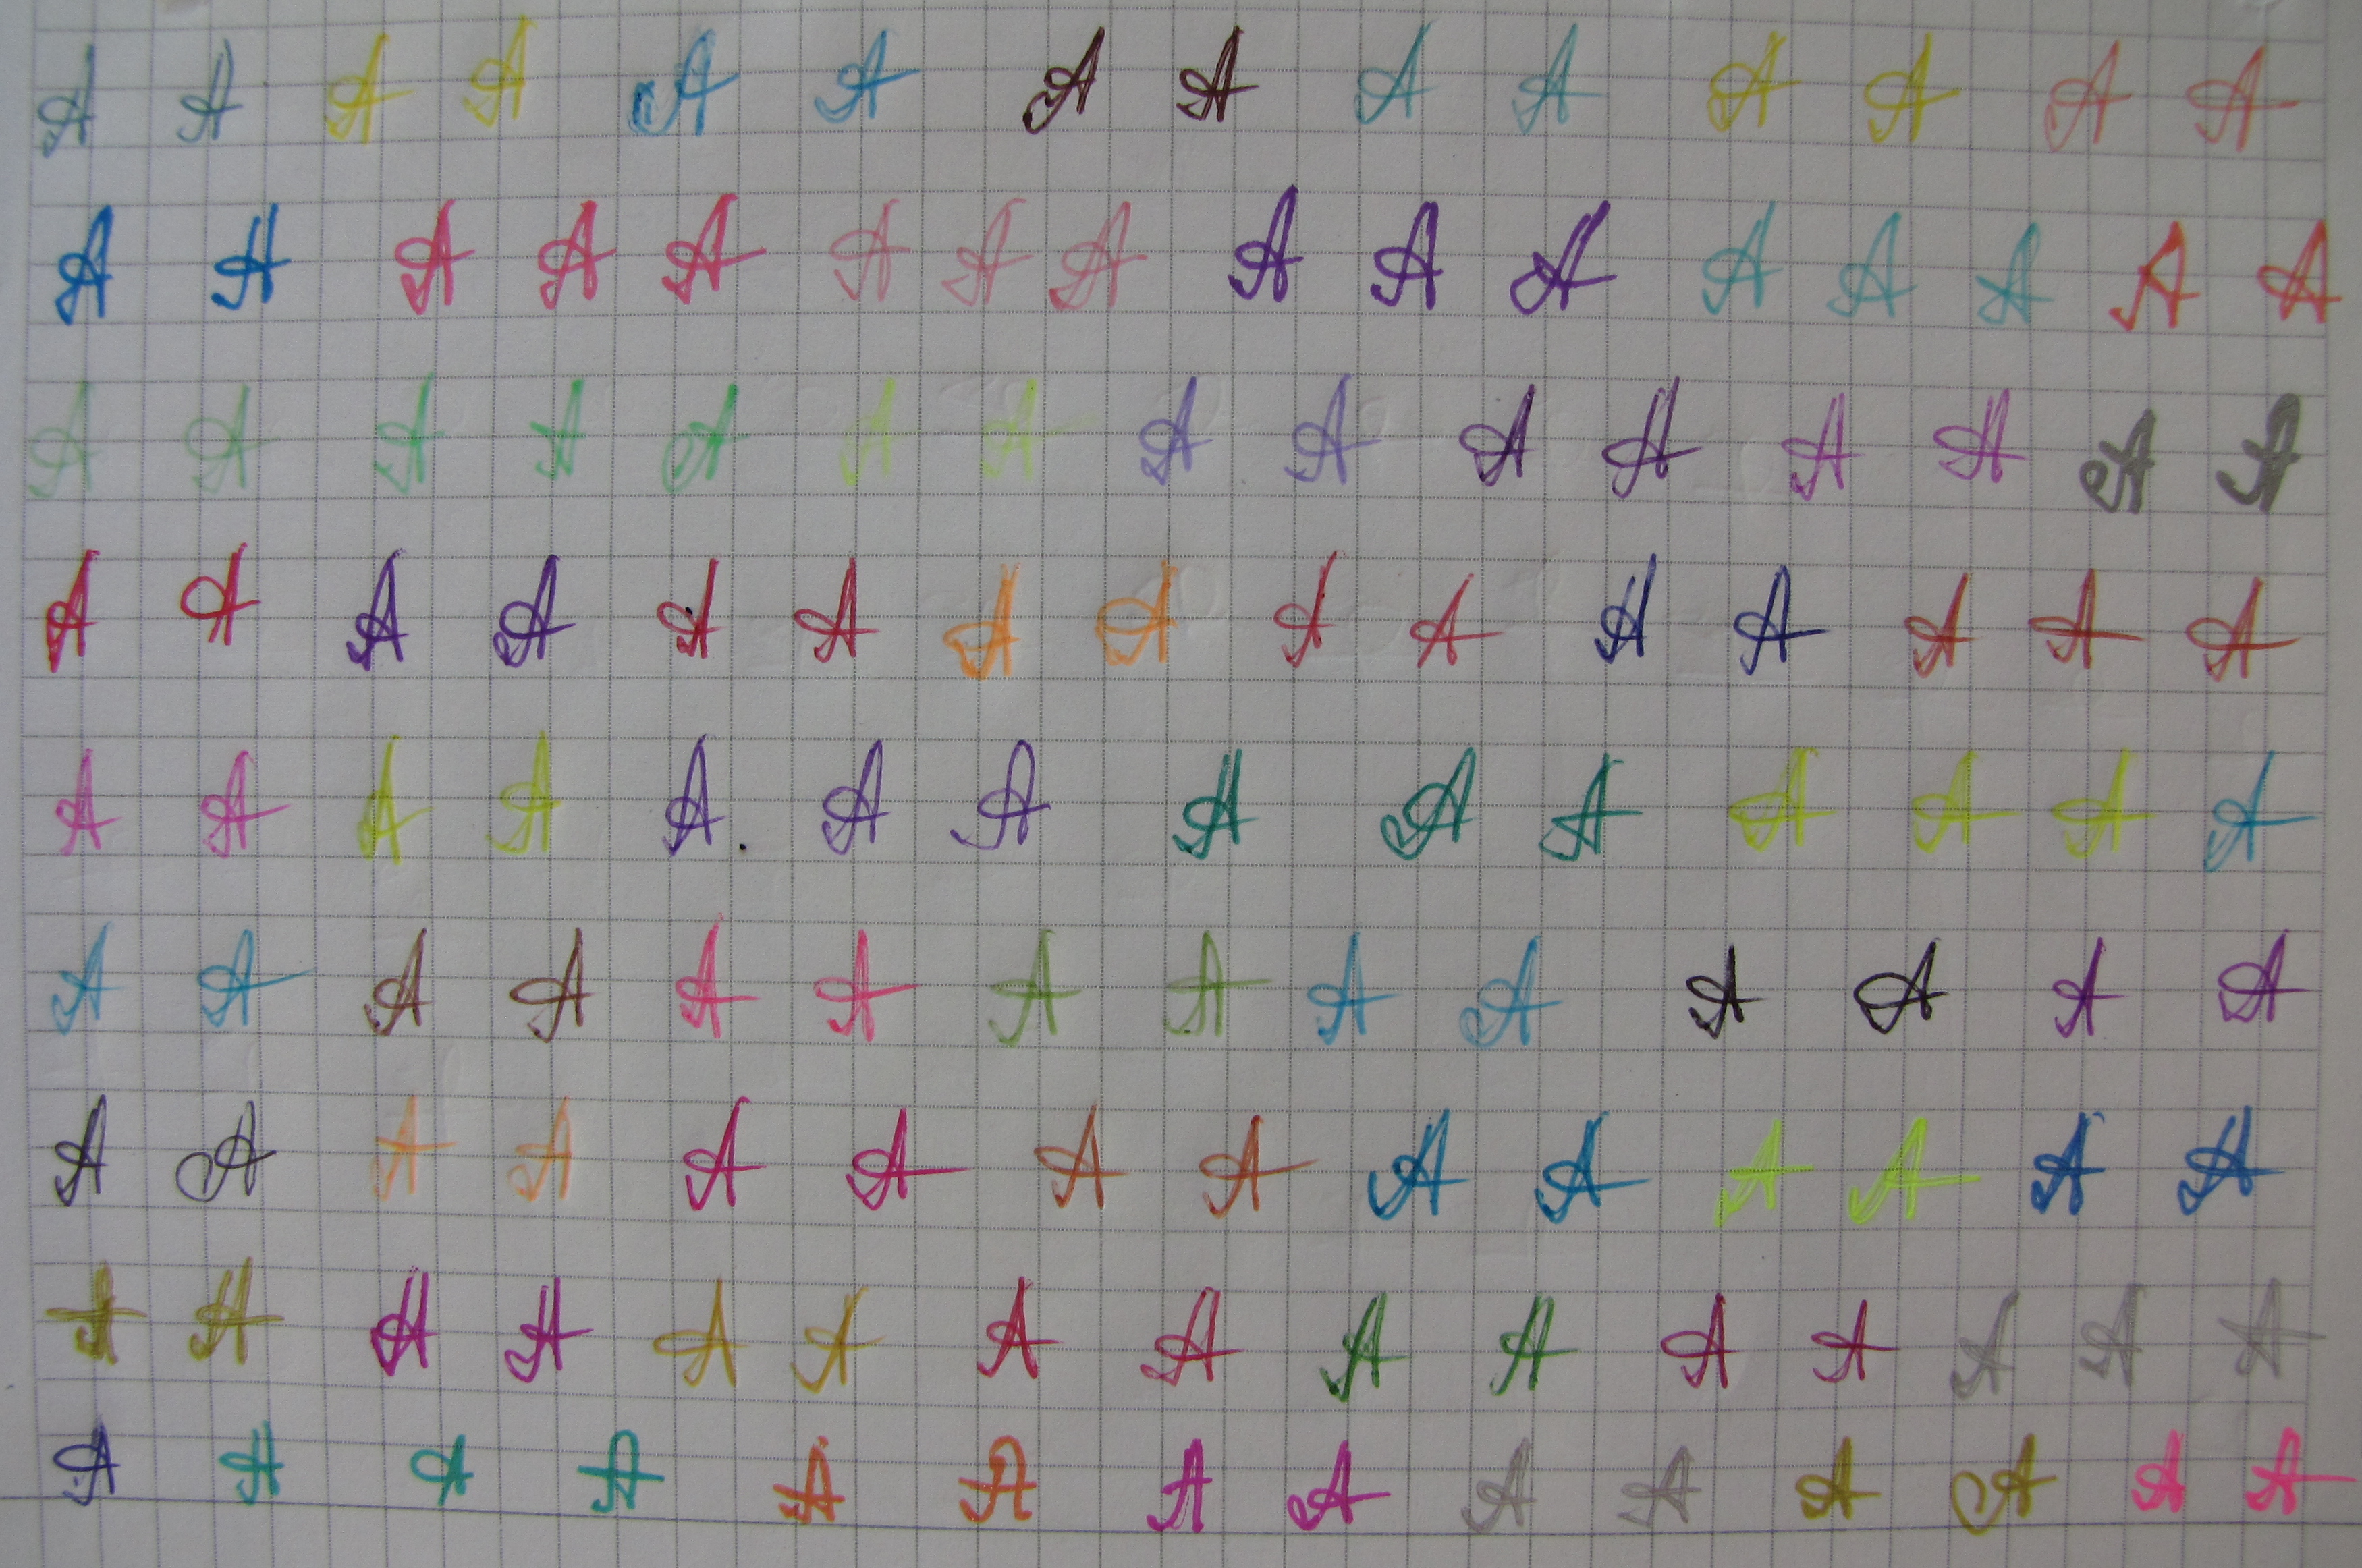 A A A A A A A A A A A A A A
A A A A A A A A A A A A A A A A
A A A A A A A A A A A A A A A
A A A A A A A A A A A A A A A
A A A A A A A A A A A A A A
A A A A A A A A A A A A A A
A A A A A A A A A A A A A A
A A A A A A A A A A A A A A A
A A A A A A A A A A A A A A